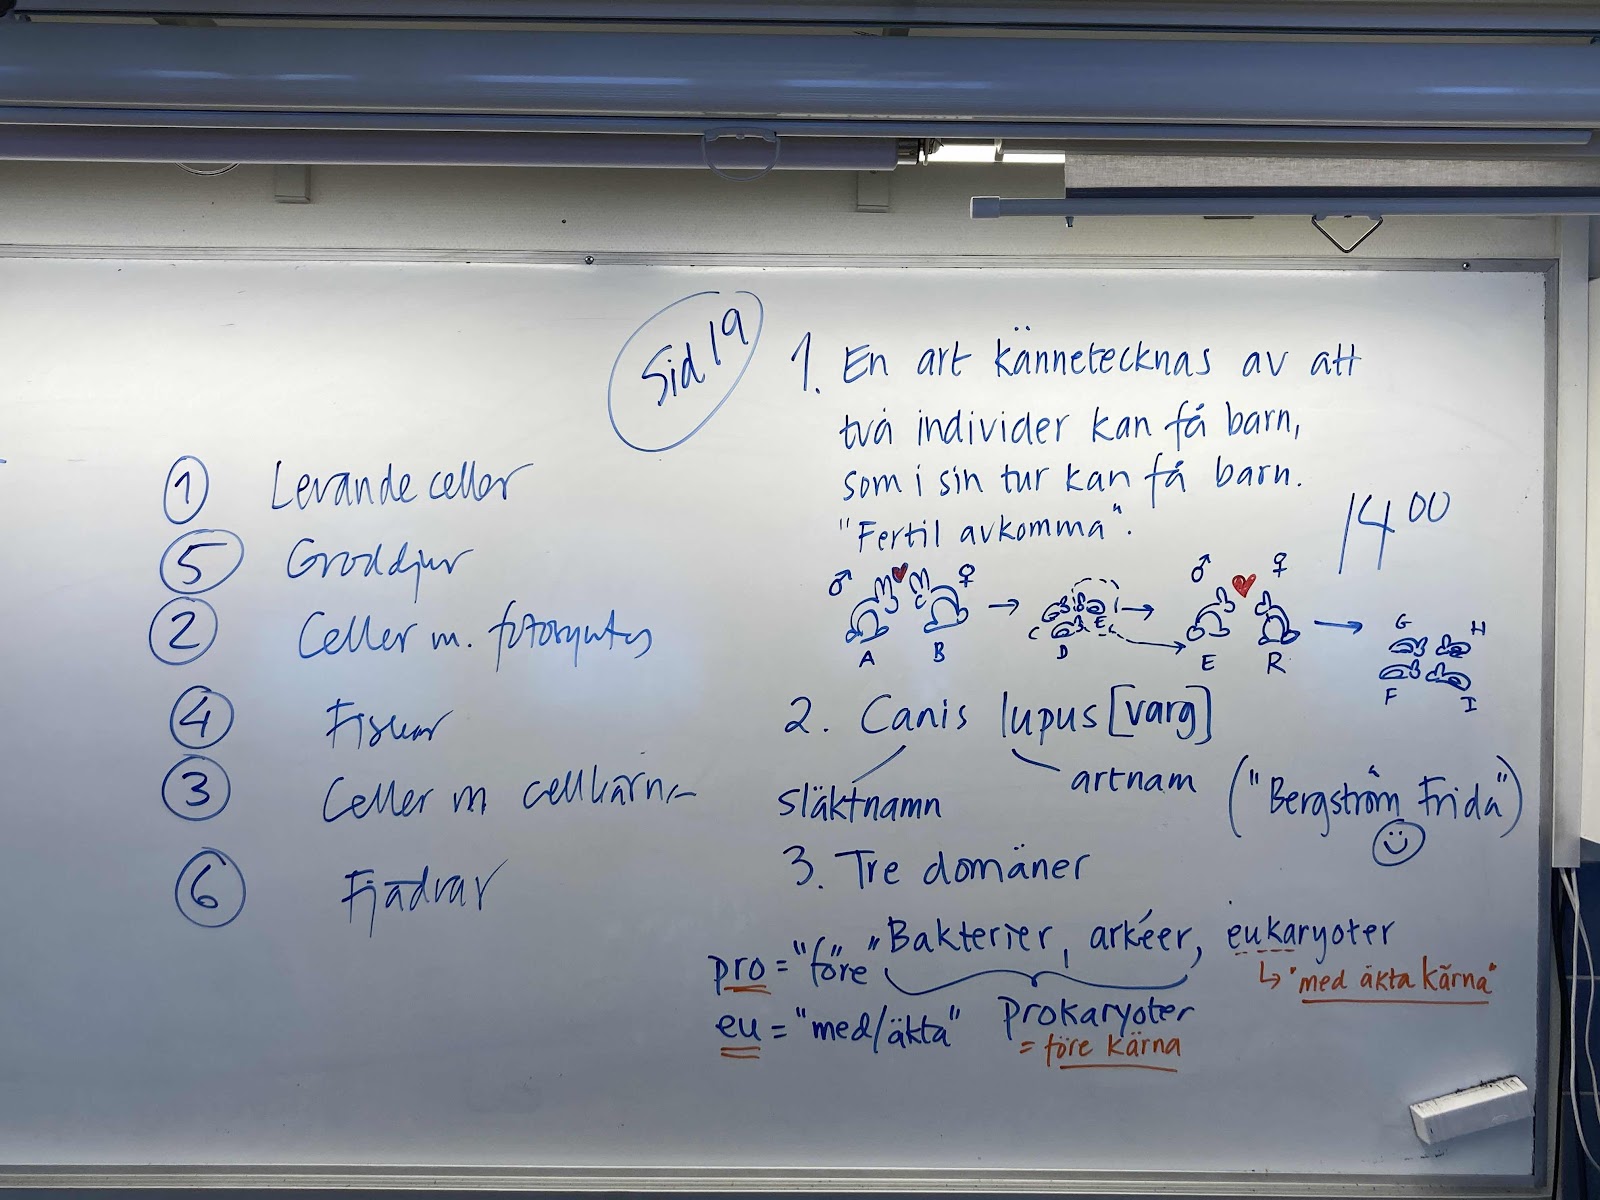 Sid 19
① Levande celler
⑤ Groddjur
② Celler m. fotosyntes
④ Fiskar
③ Celler m cellkärna
⑥ Fjädrar
1. En art kännetecknas av att
två individer kan få barn,
som i sin tur kan få barn.
"Fertil avkomma".
14 00
♂ ♥ ♀ → → ♂ ♥ ♀ →
A B C D E E R G H F I
2. Canis lupus [varg]
släktnamn artnam ("Bergström Frida")
3. Tre domäner
Bakterier, arkéer, eukaryoter
↳ "med äkta kärna"
pro = "före"
eu = "med/äkta" Prokaryoter
= före kärna